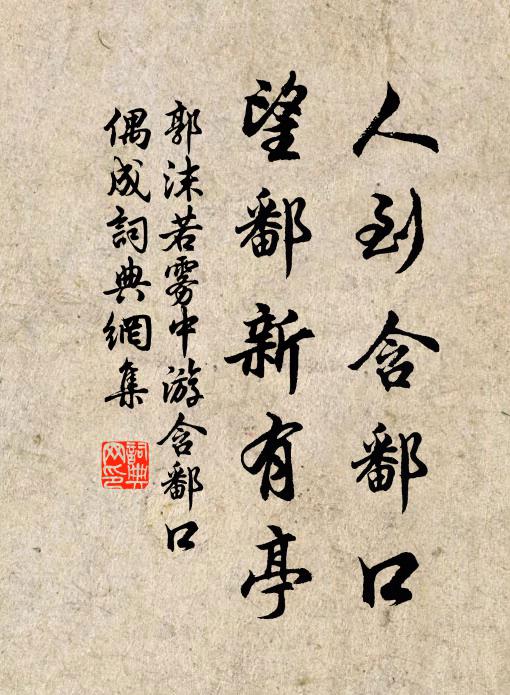 人到含鄱口
望鄱新有亭
郭沫若雾中游含鄱口
偶成詞典網集
詞典
网印